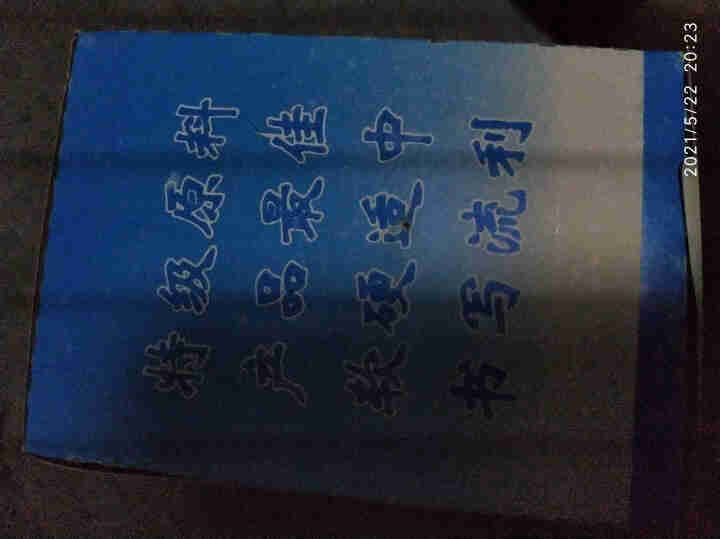 特级原料
产品最佳
软硬适中
书写流利
2021/5/22 20:23